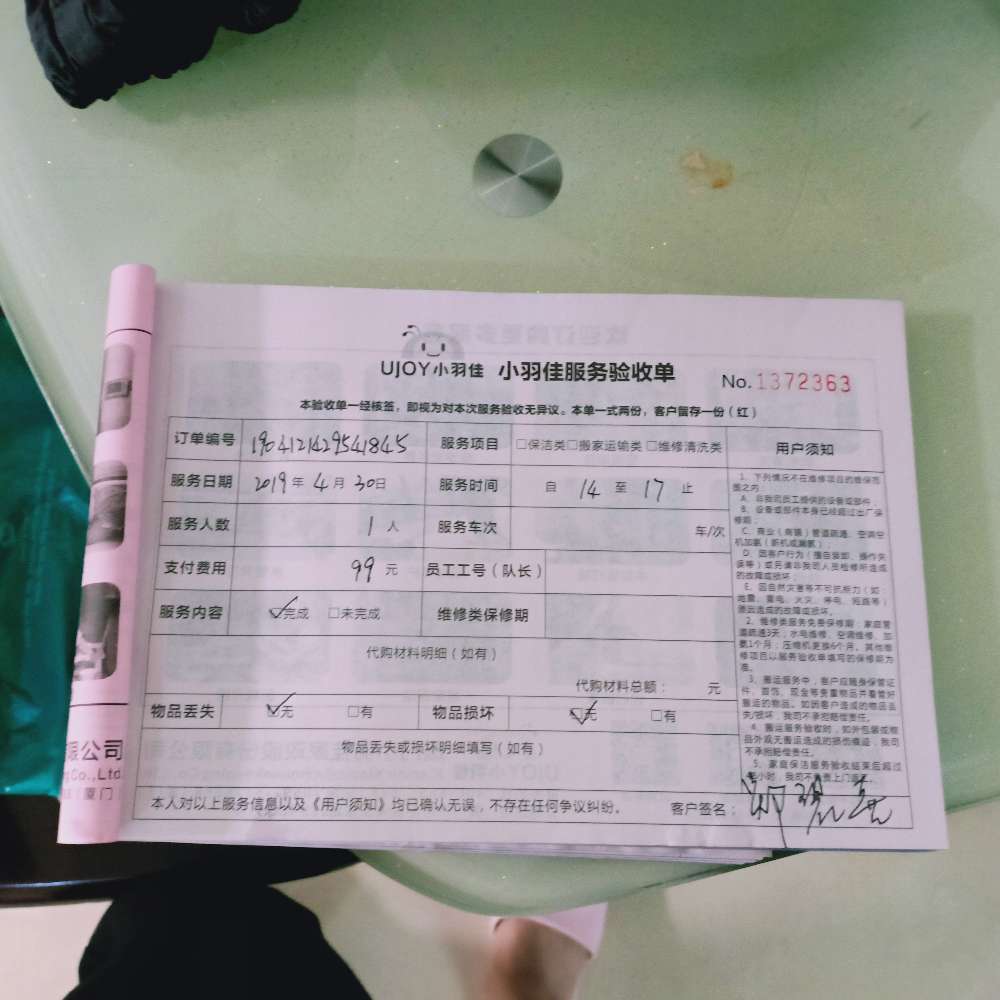 UJOY小羽佳 小羽佳服务验收单 No.1372363
本验收单一经核签，即视为对本次服务验收无异议。本单一式两份，客户留存一份（红）
订单编号 190412142954845 服务项目 □保洁类□搬家运输类□维修清洗类 用户须知
服务日期 2019年 4月 30日 服务时间 自 14 至 17 止
服务人数 1 人 服务车次 车/次
支付费用 99 元 员工工号（队长）
服务内容 ☑完成 □未完成 维修类保修期
代购材料明细（如有）
代购材料总额： 元
物品丢失 ☑无 □有 物品损坏 ☑无 □有
物品丢失或损坏明细填写（如有）
本人对以上服务信息以及《用户须知》均已确认无误，不存在任何争议纠纷。 客户签名：
1、下列情况不在维修项目的维保范
围之内：
A、非我司员工提供的设备或部件；
B、设备或部件本身已经超过出厂保
修期；
C、商业（商铺）管道疏通、空调空
机加氟（新机或漏氟）；
D、因客户行为（擅自装卸、操作失
误等）或另请非我司人员检修所造成
的故障或损坏；
E、因自然灾害等不可抗力（如：
地震、雷电、火灾、停电、短路等）
原因造成的故障或损坏。
2、维修类服务免费保修期：家庭管
道疏通3天；水电维修、空调维修、加
氟1个月；压缩机更换6个月。其他维
修项目以服务验收单填写的保修期为
准。
3、搬运服务中，客户应随身保管证
件、首饰、现金等贵重物品并看管好
搬运的物品。如因客户造成的物品丢
失/损坏，我司不承担赔偿责任。
4、搬运服务验收时，如外包装或物
品外观无搬运造成的损伤痕迹，我司
不承担赔偿责任。
5、家庭保洁服务验收结束后超过
小时，我司不负责上门返工。
限公司
g Co.,Ltd.
（厦门）